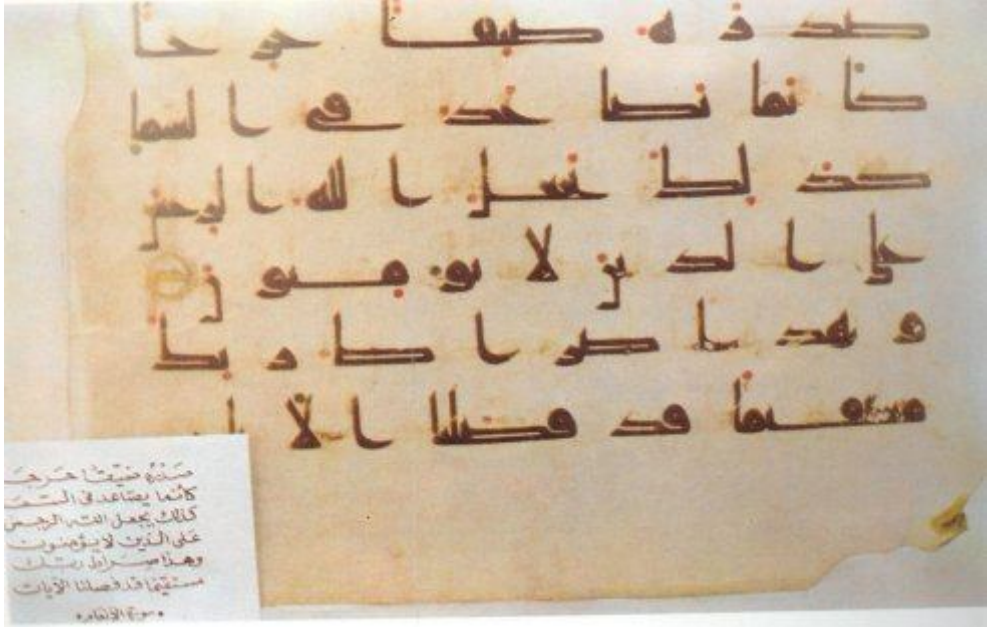 صدره ضيقا حرجا
كانما يصاعد فى السما
كذلك يجعل الله الرجس
على الذين لا يؤمنون
وهذا صراط ربك
مستقيما قد فصلنا الا
صَدْرَهُ ضَيِّقًا حَرَجَـ
كأنما يصّاعد في السمـ
كذلك يجعل الله الرجس
على الذين لا يؤمنون
وهذا صراط ربك
مستقيمًا قد فصلنا الآيات
• سورة الأنعام •